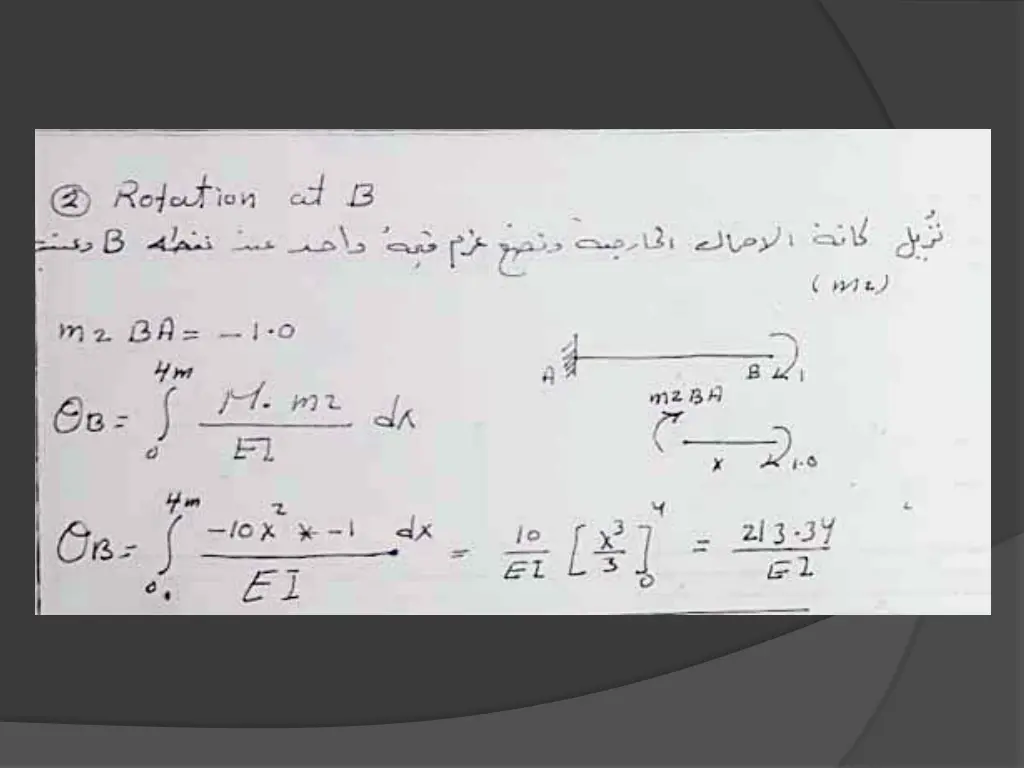 ② Rotation at B
نُزيل كافة الاحمال الخارجية ونضع عزم قيمةُ واحد عند نقطه B
(m2)
m2 BA = -1.0
A B 1
θB = ∫₀^4m M. m2 / EI dx
m2BA
x 1.0
θB = ∫₀^4m -10x² * -1 / EI dx = 10/EI [x³/3]₀^4 = 213.34/EI